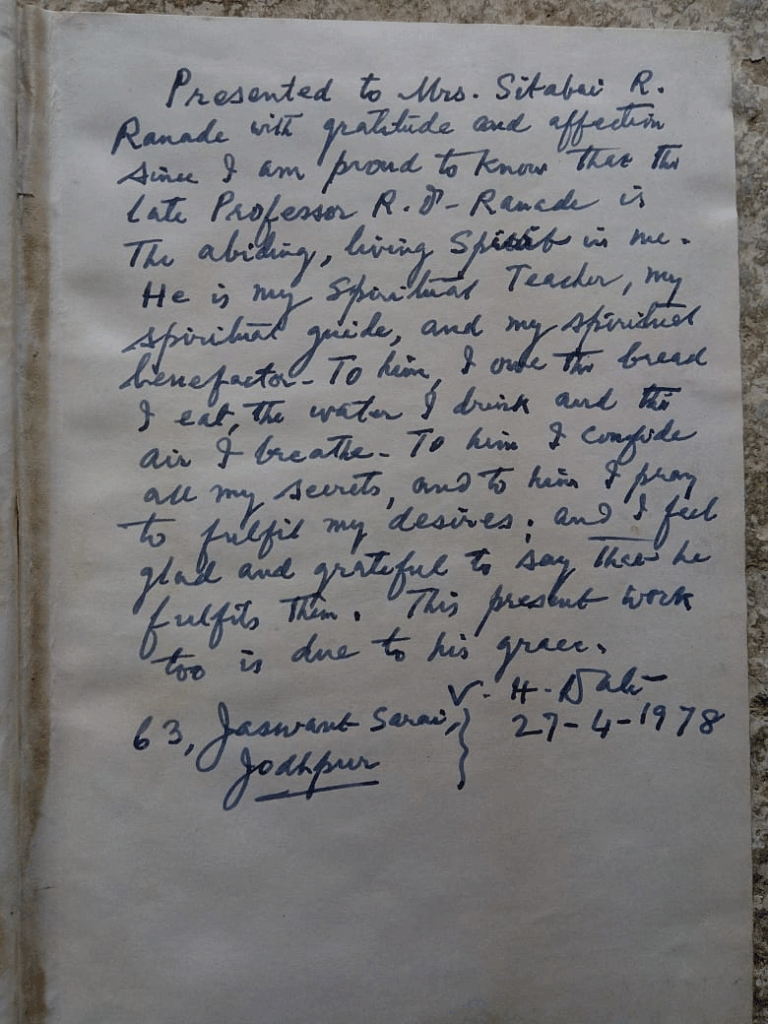 Presented to Mrs. Sitabai R.
Ranade with gratitude and affection
since I am proud to know that the
late Professor R. D. Ranade is
the abiding, living Spirit in me.
He is my Spiritual Teacher, my
spiritual guide, and my spiritual
benefactor. To him, I owe the bread
I eat, the water I drink and the
air I breathe. To him I confide
all my secrets, and to him I pray
to fulfil my desires; and I feel
glad and grateful to say that he
fulfils them. This present work
too is due to his grace.
V. H. Date
63, Jaswant Sarai, } 27-4-1978
Jodhpur